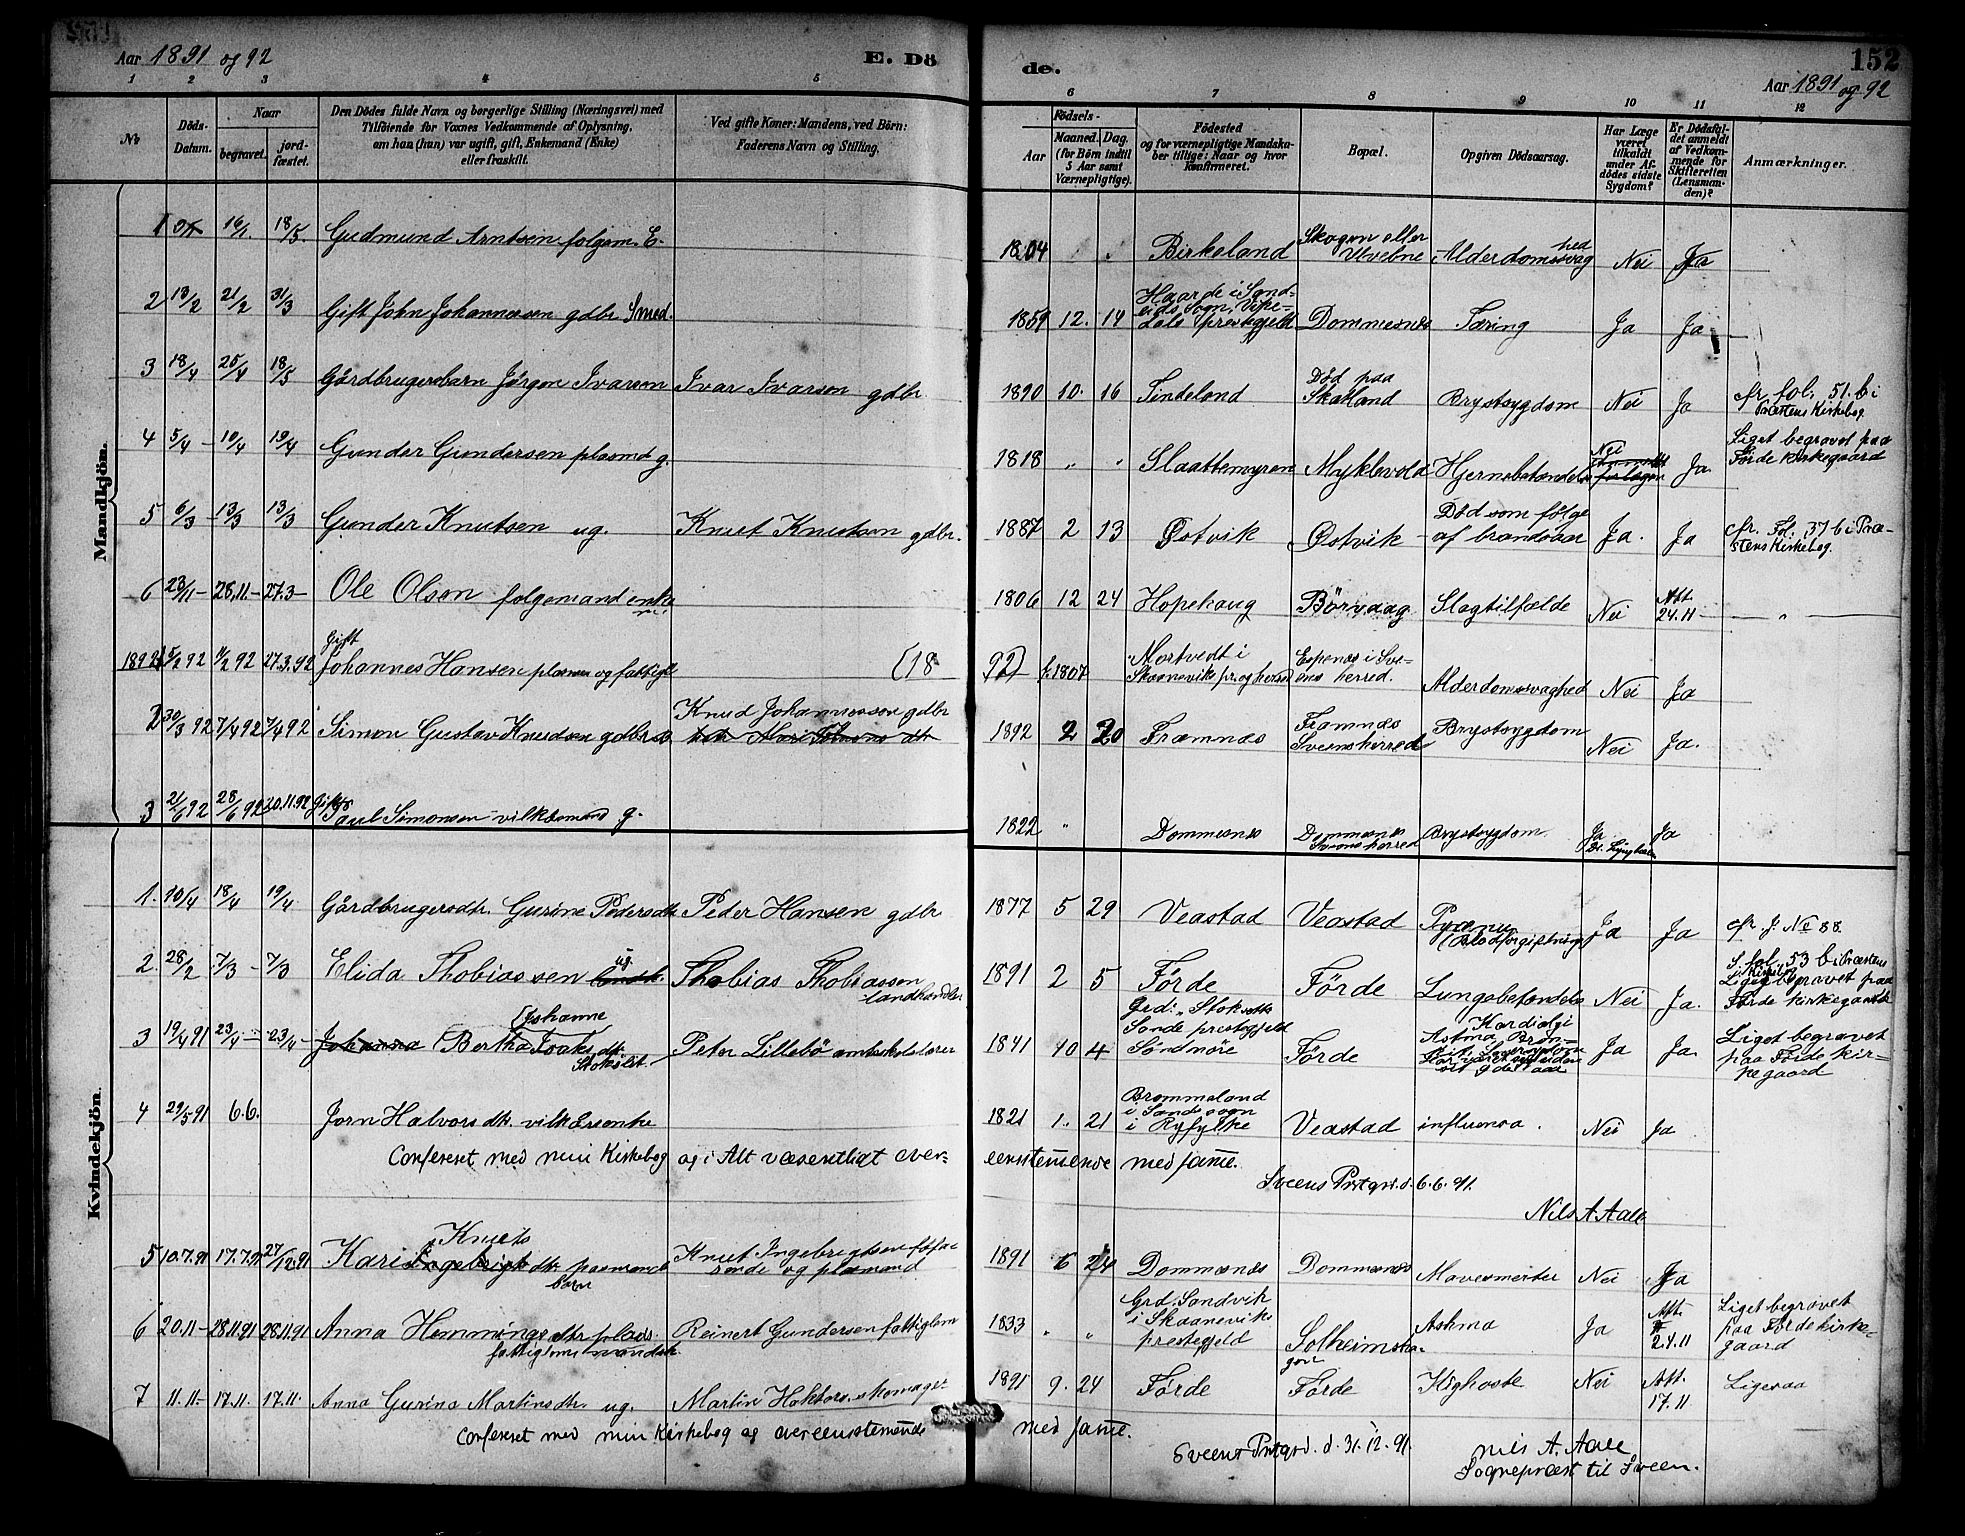 Aar 1891 og 92
E. Dö
de.
152
Aar 1891 og 92
1 2 3 4 5
6 7 8 9 10 11 12
No
Döds-Datum.
Naar
begravet.
jord-fæstet.
Den Dödes fulde Navn og borgerlige Stilling (Næringsvei) med
Tilföiende for Voxnes Vedkommende af Oplysning,
om han (hun) var ugift, gift, Enkemand (Enke)
eller fraskilt.
Ved gifte Koner: Mandens, ved Börn:
Faderens Navn og Stilling.
Födsels-
Aar
Maaned. Dag.
(for Börn indtil
5 Aar samt
Værnepligtige).
Födested
og for værnepligtige Mandska-
ber tillige: Naar og hvor
konfirmeret.
Bopæl.
Opgiven Dödsaarsag.
Har Læge
været
tilkaldt
under Af-
dödes sidste
Sygdom?
Er Dödsfal-
det anmeldt
af Vedkom-
mende for
Skifteretten
(Lensman-
den)?
Anmærkninger.
Mandkjön.
1 16/1. 18/5. Gudmund Arntsen folgem. E. 1804 Birkeland Skogen eller Utvebne Alderdomssvaghed Nei Ja
2 13/2 21/2 31/3 Gift John Johannesen gdbr. Smed. 1859 12. 14 Haarde i Sand-
eids Sogn, Vike-
dals prestegjeld Dommesnes Tæring Ja Ja
3 18/4 25/4 18/5 Gårdbrugersbarn Jörgen Ivarsen Ivar Ivarsen gdbr. 1890 10. 16 Tindeland Död paa
Skatland Brystsygdom Nei Ja cfr. fol. 51. b i
Præstens Kirkebog.
4 5/4 - 10/4 19/4 Gunder Gundersen plasmd g. 1818 " " Slaattemyren Myklevold Hjernebetændelse Nei Ja. Liget begravet paa
Förde kirkegaard
5 6/3 - 13/3 13/3 Gunder Knutsen ug. Knut Knutsen gdbr. 1887 2 13 Østvik Østvik Död som fölge
af brandsaar Ja. Ja cfr. Fol. 37 b i Præ-
stens Kirkebog.
6 23/11 - 28.11 - 27.3 - Ole Olsen folgemand enke
m. 1806 12 24 Hopehaug Börsvaag Slagtilfælde Nei Att.
24.11 - — " —
1892 1 5/2 92 11/2 92 27.3.92 Gift
Johannes Hansen plassm og fattigl (18 92) f. 1807 Mortvedt i
Skaanevik pr. og herred Espenes i Sve-
ens herred. Alderdomssvaghed Nei Ja
2 30/3 92 7/4 92 7/4 92 Simon Gustav Knudsen gdbr. s Knud Johannessen gdbr 1892 2 20 Framnæs Framnæs
Sveens herred Brystsygdom Nei Ja.
3 21/6 92 28/6 92 20.11.92 Gift
Paul Simonsen vilkårsmand g. 1822 " Dommesnes Dommesnes
Sveens herred Brystsygdom. Ja
Dr. Ja
Kvindekjön.
1. 10/4 18/4 19/4 Gårdbrugersdtr. Gurine Pedersdtr. Peder Hansen gdbr 1877 5 29 Veastad Veastad Pyæmu
(Blodforgiftning) Ja Ja cfr. J. No 88.
2. 28/2 7/3 - 7/3 Elida Thobiassen ug. Thobias Thobiassen
landhandler 1891 2 5 Förde Förde Lungebetændelse Nei Ja. S. fol. 53 b i Præstens
Kirkebog
Liget begravet paa
Förde kirkegaard
3 19/4 91 23/4 - 23/4 - Johanna Johanne
Bertha dtr.
Stokset. Peter Lillebö omb.skolelærer 1841 10 4 Grd: Stokset
Sande prestegjeld
Söndmöre Förde Kardialgi
Astma Bron-
Ja Ja. Liget begravet
paa Förde kir-
kegaard
4 29/5 91 6.6. Jorn Halvorsdtr. vilkårsenke 1821 1. 21 Brommeland
i Sands sogn
i Ryfylke Veastad influensa. Nei Ja
Confereret med min Kirkebog og i Alt væsentligt over-
eensstemmende med samme.
Sveens Prstgrd. d. 6.6.91.
Nils A. Aall
5 10.7.91 17.7.91 27/12.91 Kari Knuts
Ingebrigtsdtr. pasmands
barn Knut Ingebrigtsen fefa-
rende og plasmand 1891 6 24 Dommesnes Dommesnes Mavesmerter Nei Ja
6 20.11 - 28.11.91 28.11.91 Anna Hemmingsdtr. plads-
fattiglem mandsk. Reinert Gundersen fattiglem 1833 " " Grd. Sandvik
i Skaanevik
prestegjeld Solheimska-
gen Asthma Ja Att.
24.11 Liget begravet
paa Förde kirke-
gaard
7 11.11 - 17.11. 17.11. Anna Gurina Martinsdtr. ug. Martin Haktors. skomager 1891 9. 24 Förde Förde Kighoste Nei Att.
17.11 Ligesaa
Confereret med min Kirkebog og overeensstemmende
med samme.
Sveens Prstgrd. d. 31.12.91.
Nils A. Aall
Sognepræst til Sveen.